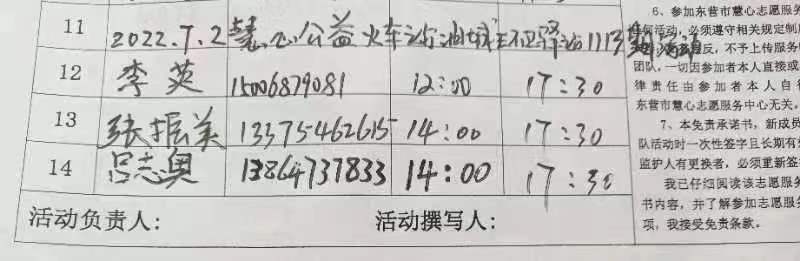 11 2022.7.2慧心公益火车站油城王佐驿站1113
12 李英 15006879081 12:00 17:30
13 张振美 13375462615 14:00 17:30
14 吕志奥 13864737833 14:00 17:30
活动负责人: 活动撰写人:
6、参加东营市慧心志愿服
何活动,必须遵守相关规定制
反,不予上传服务
团队,一切因参加者本人直接或
律责任由参加者本人自
东营市慧心志愿服务中心无关。
7、本免责承诺书,新成员
队活动时一次性签字且长期有
监护人有更换者,必须重新签
我已仔细阅读该志愿服
书内容,并了解参加志愿服务
项,我接受免责条款。